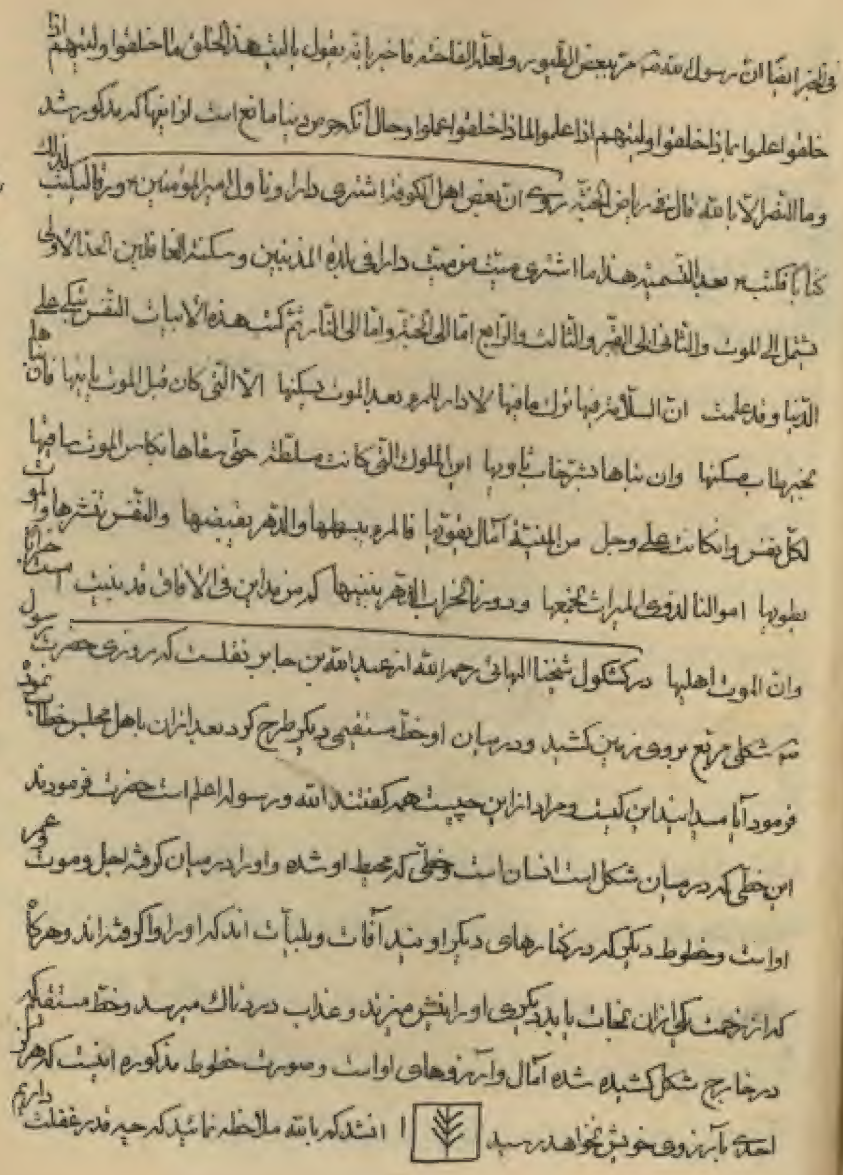 فی الخبر ایضا ان رسول الله صه مر ببعض الطیور ولعله الفاخته فاخبر بانه یقول یا لیت هذا الخلق ما خلقوا ولیتهم اذا
خلقوا علموا لماذا خلقوا ولیتهم اذا علموا لماذا خلقوا عملوا وحال آنکه حرص دنیا مانع است از اینها که مذکور شد
وما النصر الا بالله قال فی ریاض الجنة روی ان بعض اهل الکوفة اشتری دارا وناول امیر المؤمنین ورقا لیکتب لذلک
کتابا فکتب بعد التسمیة هذا ما اشتری میت من میت دارا فی بلدة المذنبین وسکنة الغافلین الحد الاول
ینتهی الی الموت والثانی الی القبر والثالث والرابع اما الی الجنة واما الی النار ثم کتب هذه الابیات النفس تبکی علی
الدنیا وقد علمت ان السلامة فیها ترک ما فیها لا دار للمرء بعد الموت یسکنها الا التی کان قبل الموت بانیها فان بناها
بخیر طاب مسکنها وان بناها بشر خاب ثاویها این الملوک التی کانت مسلطة حتی سقاها بکاس الموت ساقیها
لکل نفس وان کانت علی وجل من المنیة آمال یقویها فالمرء یبسطها والدهر یقبضها والنفس تنشرها والموت
یطویها اموالنا لذوی المیراث نجمعها ودورنا لخراب الدهر نبنیها کم من مداین فی الآفاق قد بنیت امست خرابا
وان الموت اهلیها در کشکول شیخنا البهائی رحمه الله از عبد الله بن عباس نقلست که روزی حضرت رسول
صه شکلی مربع بروی زمین کشید ودر میان او خط مستقیمی دیگر طرح کرد بعد ازان باهل مجلس خطاب نمود
فرمود آیا میدانید این کیست ومراد از این چیست همه گفتند الله ورسوله اعلم است حضرت فرمودند
این خطی که در میان شکل است انسان است وخطی که محیط او شده واو را در میان گرفته اجل وموت وعمر
اوست وخطوط دیگر که در کنارهای دیگر اویند آفات وبلیات اند که او را وا گرفته اند وهرگاه
که از زحمت یکی ازان نجات یابد دیگری او را نیش میزند وعذاب دردناک میرسد وخط مستقیم که
در خارج شکل کشیده شده آمال وآرزوهای اوست وصورت خطوط مذکوره اینست که هرگز
احدی بآرزوی خویش نخواهد رسید ا انشدکم بالله ملاحظه نمائید که چه قدر غفلت داریم